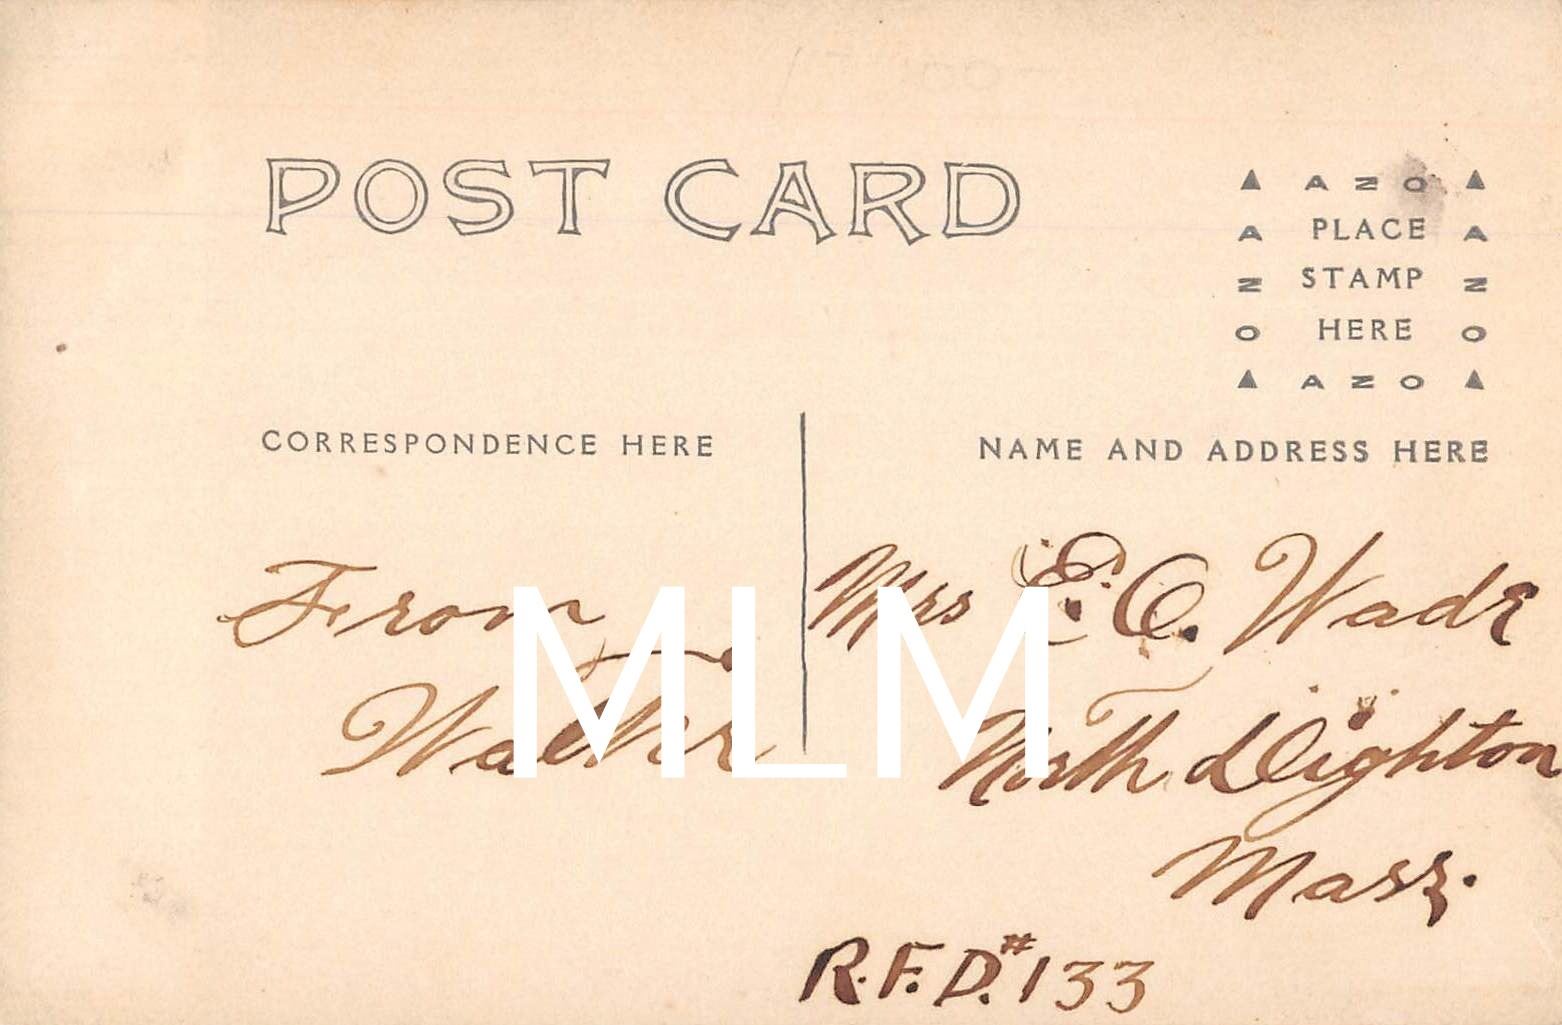 POST CARD
▲ AZO ▲
A PLACE A
Z STAMP Z
O HERE O
▲ AZO ▲
CORRESPONDENCE HERE
NAME AND ADDRESS HERE
From
Walter
Mrs E. C. Wade
North Dighton
Mass.
R.F.D. # 133
MLM